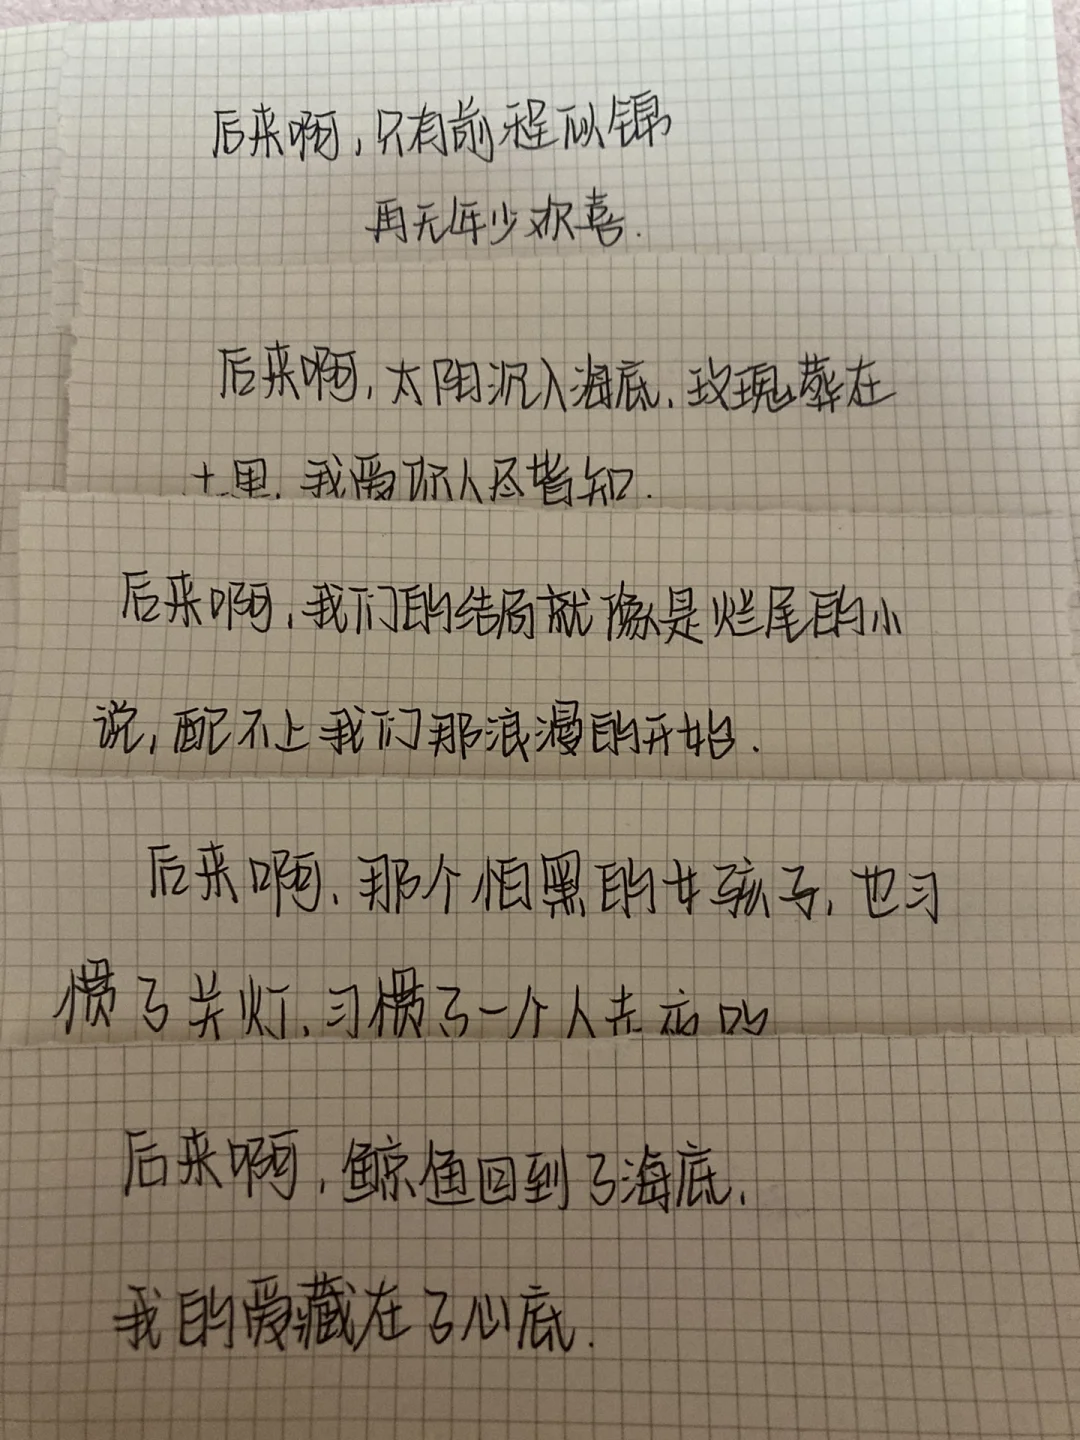 后来啊,只有前程似锦
再无年少欢喜.
后来啊,太阳沉入海底.玫瑰葬在
土里.我爱你人尽皆知.
后来啊,我们的结局就像是烂尾的小
说,配不上我们那浪漫的开始.
后来啊.那个怕黑的女孩子.也习
惯了关灯.习惯了一个人去
后来啊,鲸鱼回到了海底.
我的爱藏在了心底.